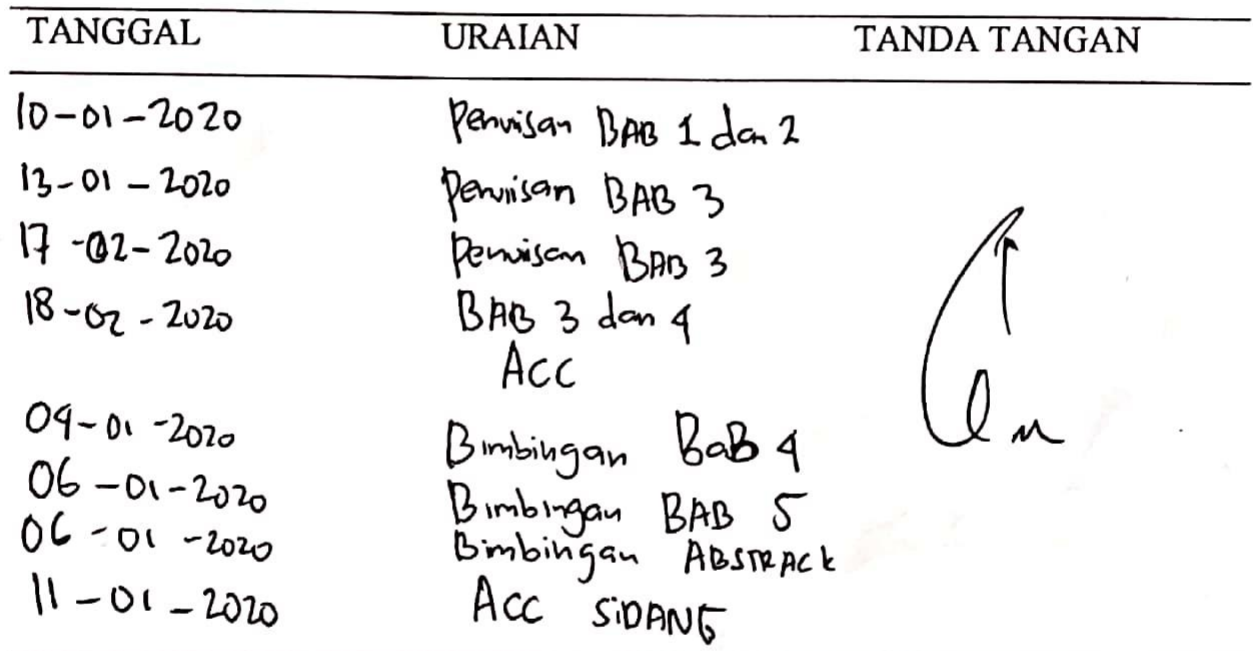 TANGGAL URAIAN TANDA TANGAN
10-01-2020 Penvisan BAB 1 dan 2
13-01-2020 Penviisan BAB 3
17-02-2020 Penvisan BAB 3
18-02-2020 BAB 3 dan 4
ACC
04-01-2020 Bimbingan BaB 4
06-01-2020 Bimbingan BAB 5
06-01-2020 Bimbingan ABSTRACk
11-01-2020 ACC SiDANG